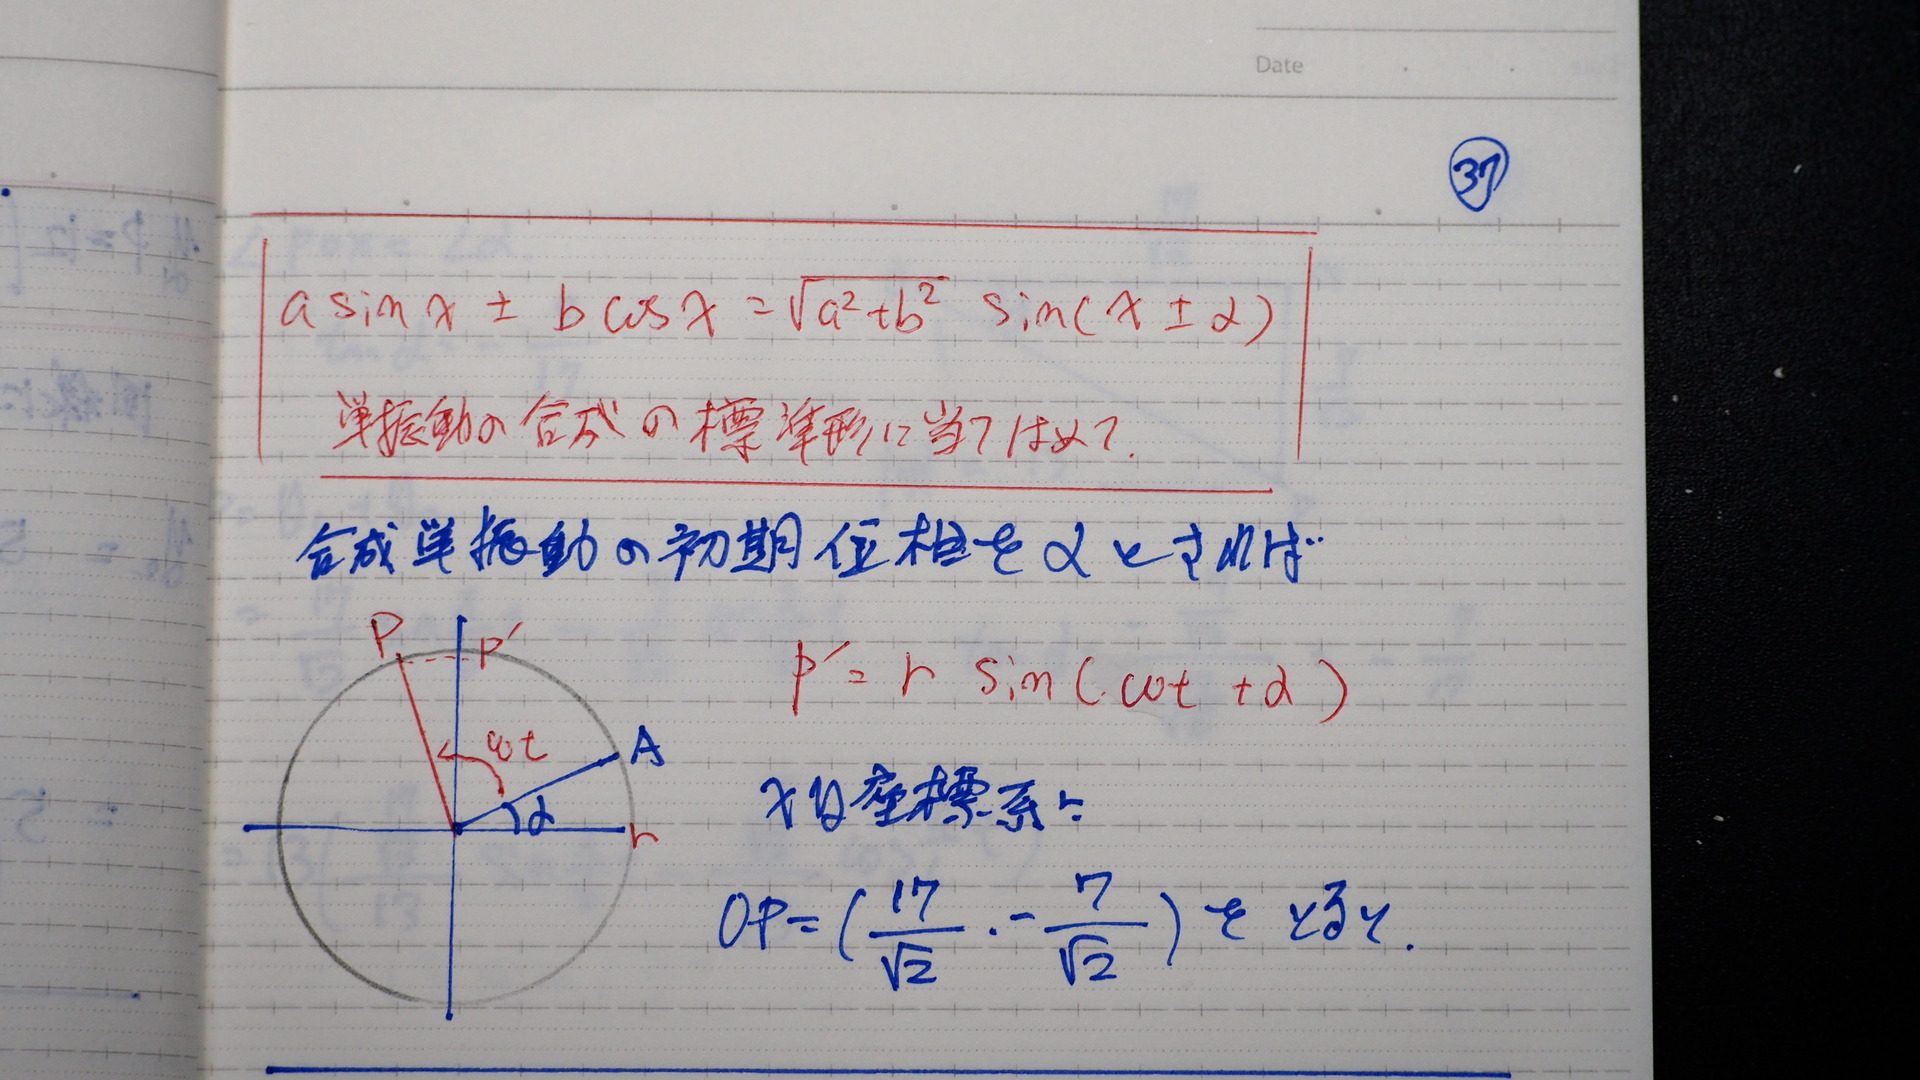 Date
37
a sin x ± b cos x = √a²+b² sin(x ± α)
単振動の合成の標準形に当てはめて.
合成単振動の初期位相をαとすれば
P
P´
ωt
A
α
r
P´= r sin(ωt + α)
xy座標系に
OP=(17/√2 . -7/√2)をとると.